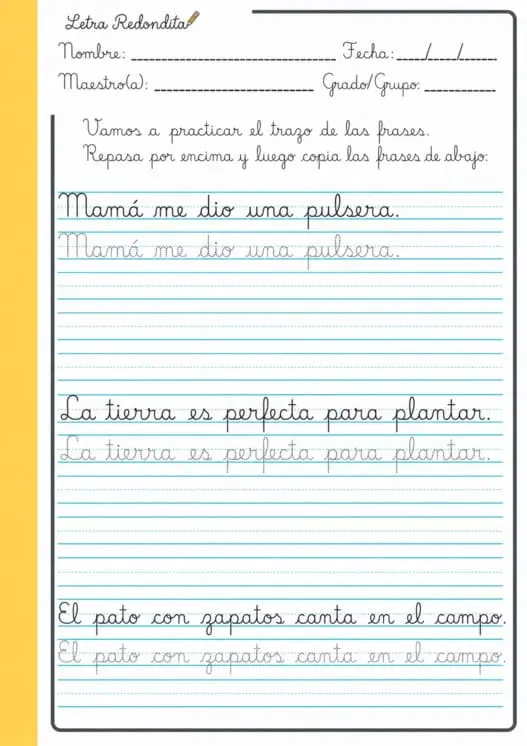 Letra Redondita
Nombre: Fecha: / /
Maestro(a): Grado/Grupo:
Vamos a practicar el trazo de las frases.
Repasa por encima y luego copia las frases de abajo:
Mamá me dio una pulsera.
Mamá me dio una pulsera.
La tierra es perfecta para plantar.
La tierra es perfecta para plantar.
El pato con zapatos canta en el campo.
El pato con zapatos canta en el campo.